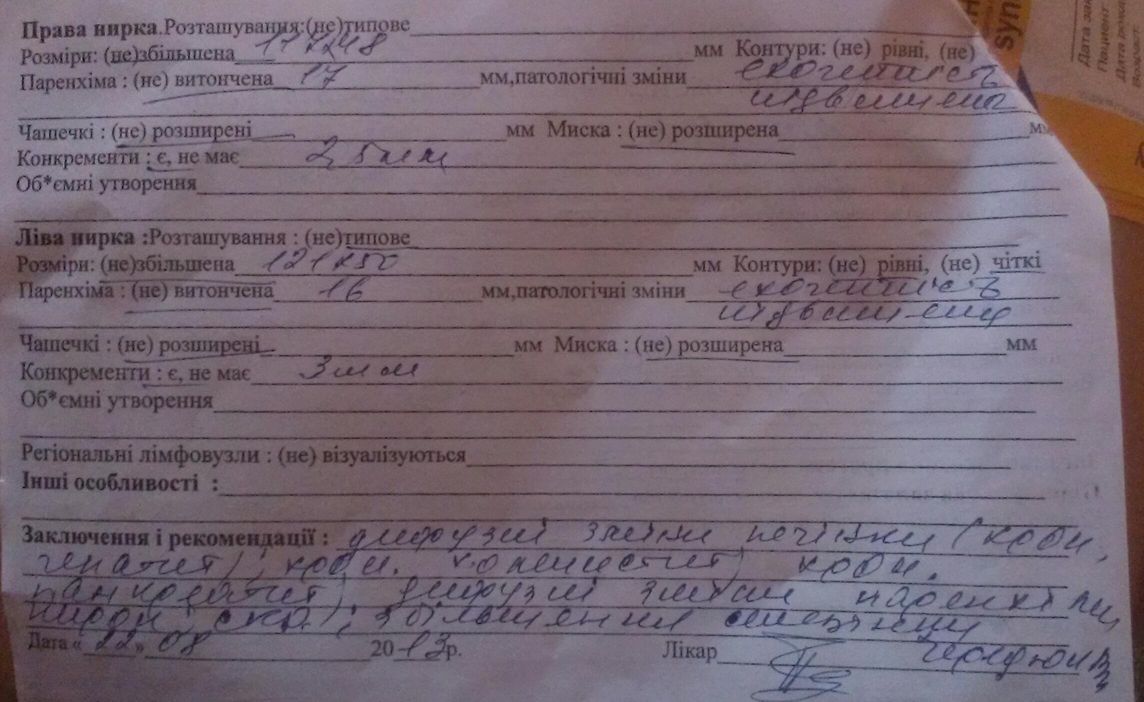 Права нирка.Розташування:(не)типове
Розміри: (не)збільшена 117х48 мм Контури: (не) рівні, (не)
Паренхіма : (не) витончена 17 мм,патологічні зміни ехогенність
підвищена
Чашечкі : (не) розширені мм Миска : (не) розширена мм
Конкременти : є, не має 2,5мм
Об*ємні утворення
Ліва нирка :Розташування : (не)типове
Розміри: (не)збільшена 121х50 мм Контури: (не) рівні, (не) чіткі
Паренхіма : (не) витончена 16 мм,патологічні зміни ехогенність
підвищена
Чашечкі : (не) розширені мм Миска : (не) розширена мм
Конкременти : є, не має 3мм
Об*ємні утворення
Регіональні лімфовузли : (не) візуалізуються
Інші особливості :
Заключення і рекомендації : дифузні зміни печінки (хрон.
гепатит); хрон. холецистит; хрон.
панкреатит; дифузні зміни паренхіми
нирок, збільшення селезінки
Дата « 22 » 08 2013р. Лікар
syn
Дата
Пацієнт
Дата